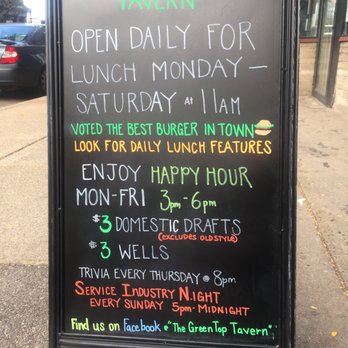 TAVERN
OPEN DAILY FOR
LUNCH MONDAY –
SATURDAY at 11AM
VOTED THE BEST BURGER IN TOWN
LOOK FOR DAILY LUNCH FEATURES
ENJOY HAPPY HOUR
MON-FRI 3pm-6pm
$3 DOMESTIC DRAFTS
(EXCLUDES OLD STYLE)
$3 WELLS
TRIVIA EVERY THURSDAY @ 8pm
SERVICE INDUSTRY NIGHT
EVERY SUNDAY 5pm-MIDNIGHT
Find us on Facebook @ "The Green Top Tavern"